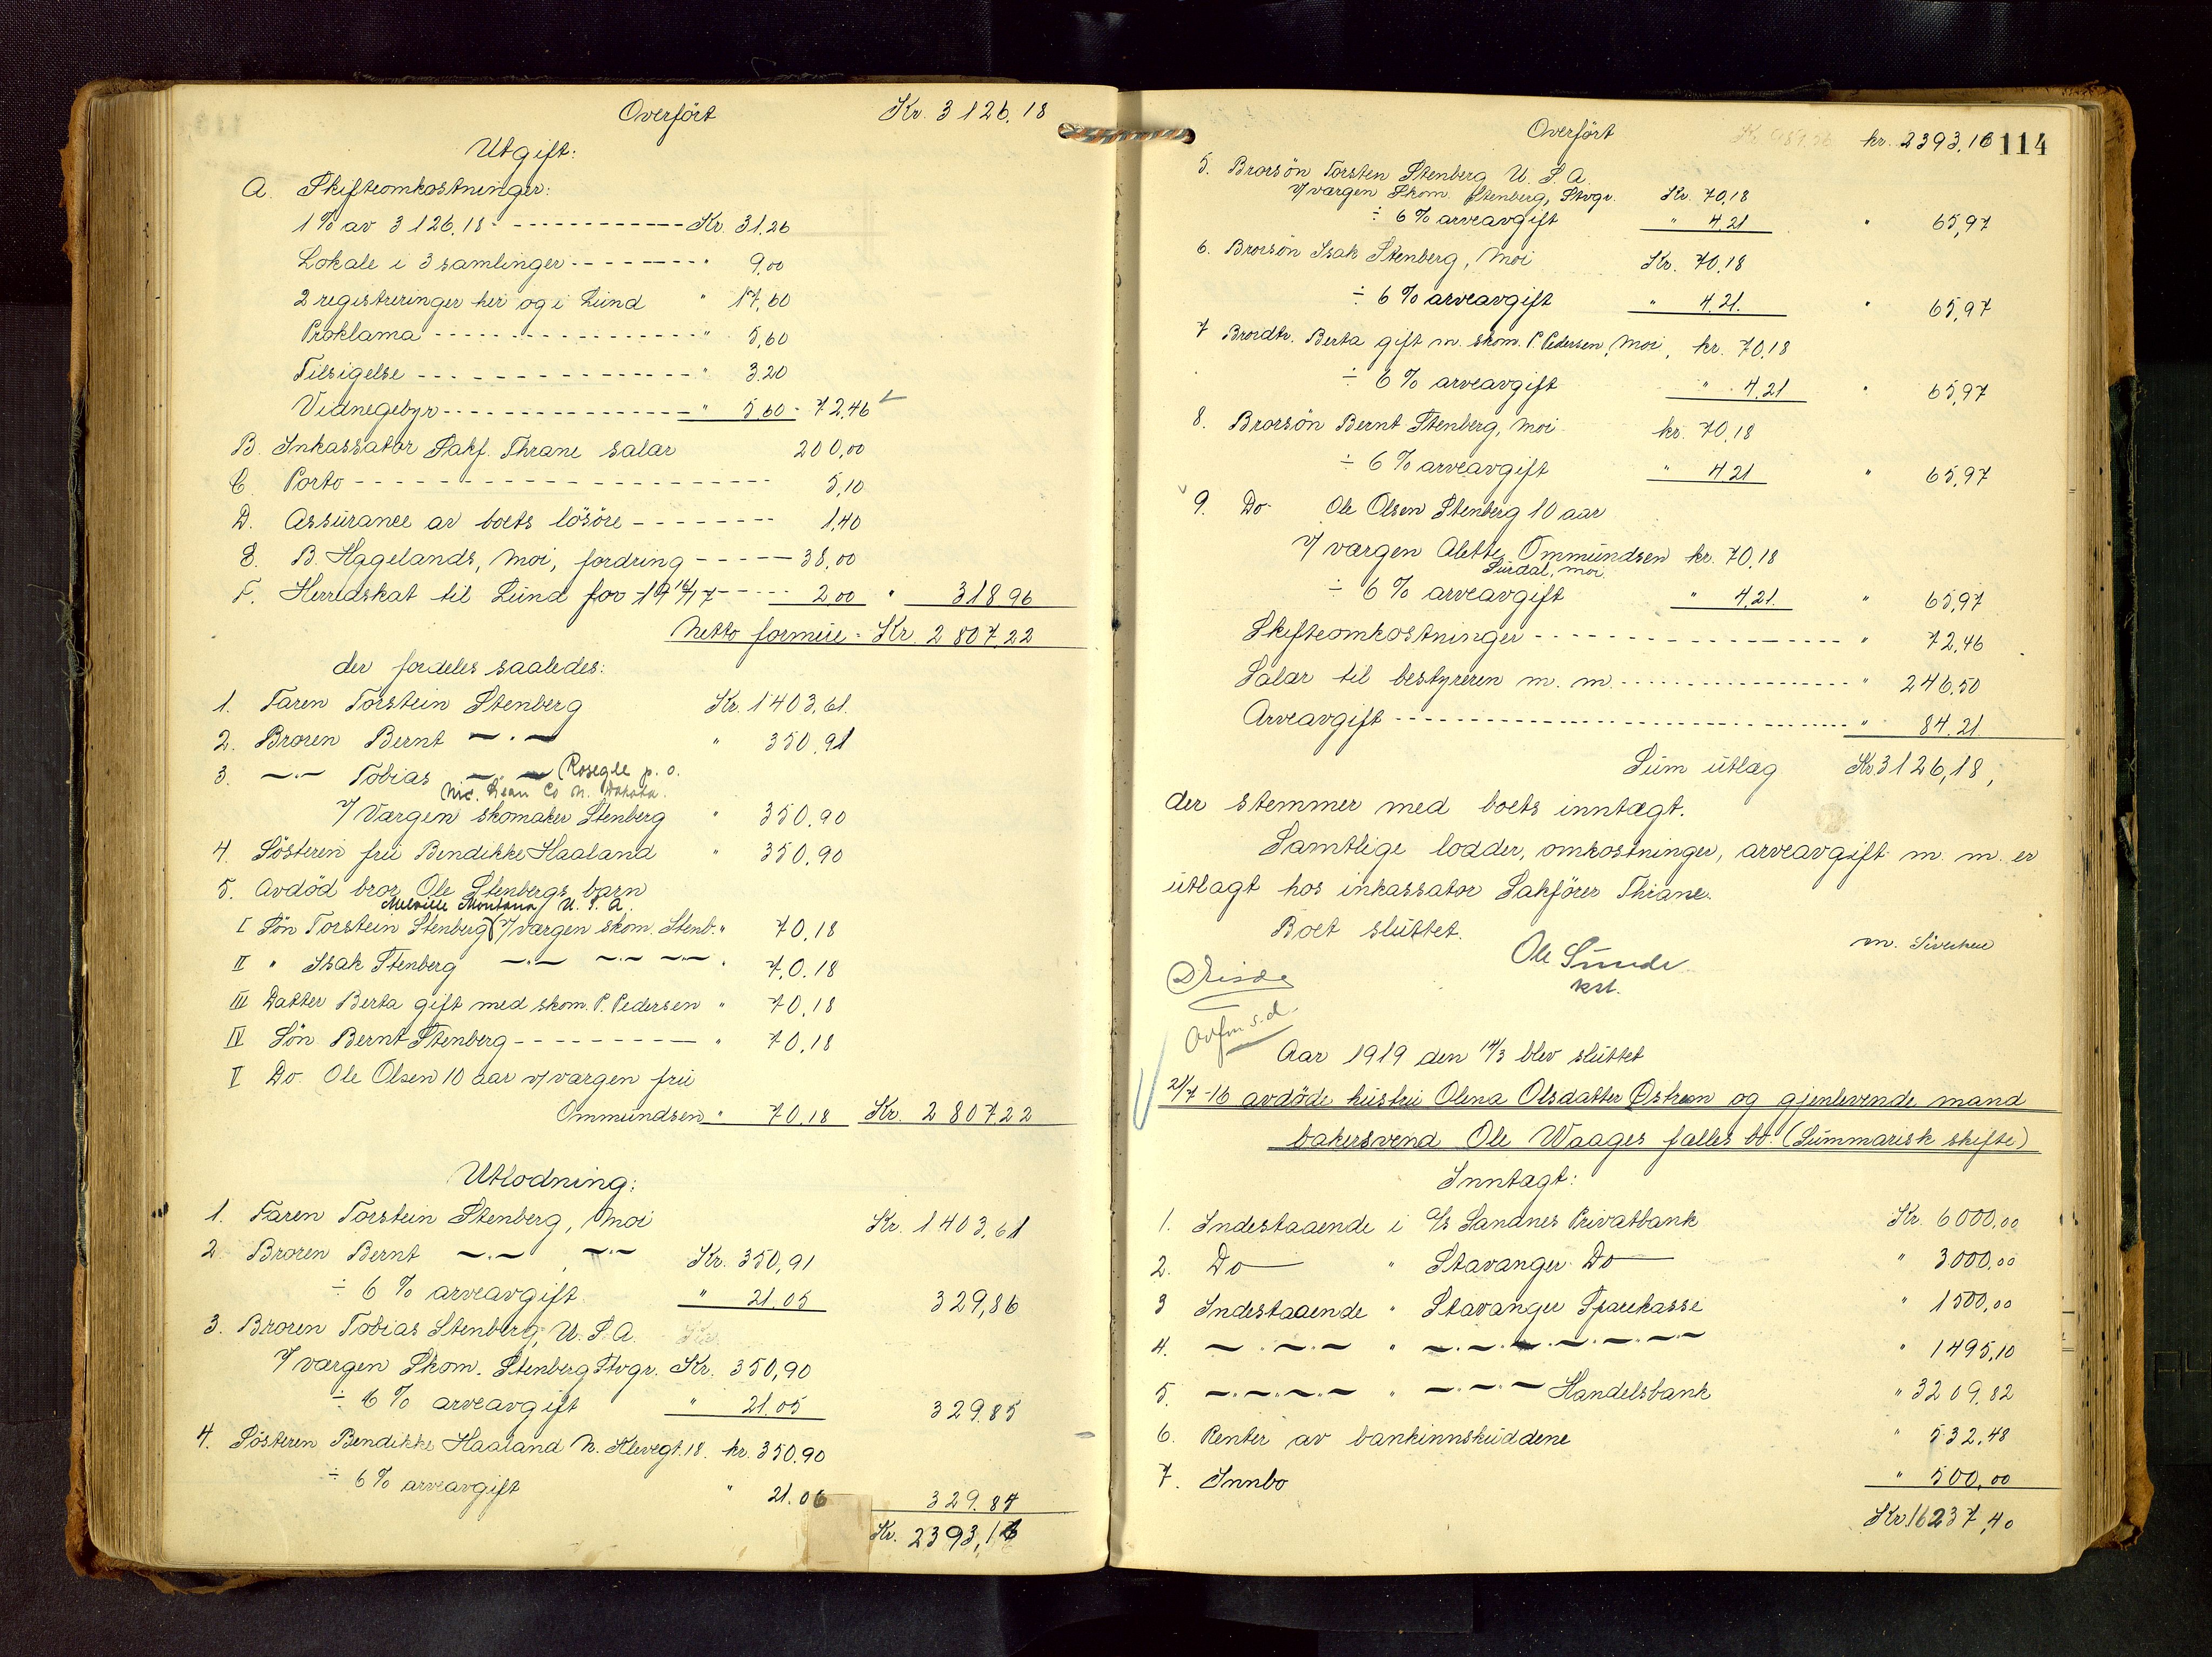 Overført Kr. 3126.18
Utgift:
A. Skifteomkostninger:
1% av 3126.18 - - - Kr. 31.26
Lokale i 3 samlinger - - - " 9.00
2 registreringer her og i Lund " 17,60
Proklama - - - " 5,60
Tilsigelse - - - " 3.20
Vidnegebyr - - - " 5,60 - 72,46
B. Inkassator Sakf. Thrane salær 200,00
C. Porto - - - 5,10
D. Assurance av boets løsøre - - - 1,40
E. B. Hggelands, Moi, fordring - - - 38,00
F. Herredskat til Lund for 1916/17 - - - 2,00 " 318 96
Netto formue - Kr. 2807,22
der fordeles saaledes:
1. Faren Torstein Stenberg Kr. 1403,61.
2. Broren Bernt — . — " 350.91
3. — . — Tobias — " — (Rosegle p. o.
Mc. Lean Co N. Dakota.
v/ Værgen skomaker Stenberg " 350.90
4. Søsteren fru Bendikke Haaland " 350,90
5. Avdød bror Ole Stenbergs barn
Melville Montana, U. S. A.
I Søn Torstein Stenberg (v/ værgen skom. Stenb. " 70,18
II " Isak Stenberg — . — — . — — . — " 70.18
III Datter Berta gift med skom. P. Pedersen " 70,18
IV Søn Bernt Stenberg - - - " 70,18
V Do. Ole Olsen 10 aar v/ værgen fru
Ommundsen " 70,18 Kr. 2807.22
Utlodning:
1. Faren Torstein Stenberg, Moi Kr. 1403,61
2. Broren Bernt — . — , — . — Kr. 350,91
÷ 6 % arveavgift " 21.05 329,86
3. Broren Tobias Stenberg, U. S. A. Kr.
v/ værgen Skom. Stenberg Stvgr. Kr. 350,90
÷ 6 % arveavgift " 21.05 329.85
4. Søsteren Bendikke Haaland N. Klevegt. 18. kr. 350.90
÷ 6 % arveavgift " 21.06 329.84
Kr. 2393,16
Overført kr. 2393,16 114
5. Brorsøn Torsten Stenberg U. S. A.
v/ værgen Skom. Stenberg, Stvgr. Kr. 70,18
÷ 6 % arveavgift " 4.21 " 65,97
6. Brorsøn Isak Stenberg, Moi Kr. 70,18
÷ 6 % arveavgift " 4.21. " 65,97
7 Brordtr. Berta gift m. skom. P. Pedersen, Moi, kr. 70,18
÷ 6 % arveavgift " 4,21 " 65,97
8. Brorsøn Bernt Stenberg, Moi kr. 70,18
÷ 6 % arveavgift " 4 21 " 65,97
9. Do Ole Olsen Stenberg 10 aar
v/ værgen Alette Ommundsen kr. 70,18
Surdal, Moi.
÷ 6 % arveavgift " 4,21. " 65,97
Skifteomkostninger - - - " 72,46
Salær til bestyreren m. m. - - - " 246,50
Arveavgift - - - " 84.21
Sum utlæg Kr. 3126,18,
der stemmer med boets inntægt.
Samtlige lodder, omkostninger, arveavgift m. m. er
utlagt hos inkassator Sakfører Thrane.
Boet sluttet.
Ole Sunde m. Siversen
kst.
Avfm s.d.
Aar 1919 den 14/3 blev sluttet
21/7 -16 avdøde hustru Olena Olsdatter Østrem og gjenlevende mand
bakersvend Ole Waages fælles bo. (Summarisk skifte)
Inntægt:
1. Indestaaende i A/S Sandnes Privatbank Kr. 6000,00
2. Do — " Stavanger Do — " 3000,00
3 Indestaaende " Stavanger Sparekasse " 1500,00
4. — . — . — " — . — . — . — . — " 1495,10
5. — . — . — . — " — . — . — Handelsbank " 3209,82
6. Renter av bankinnskuddene " 532,48
7. Innbo " 500,00
Kr 16237,40